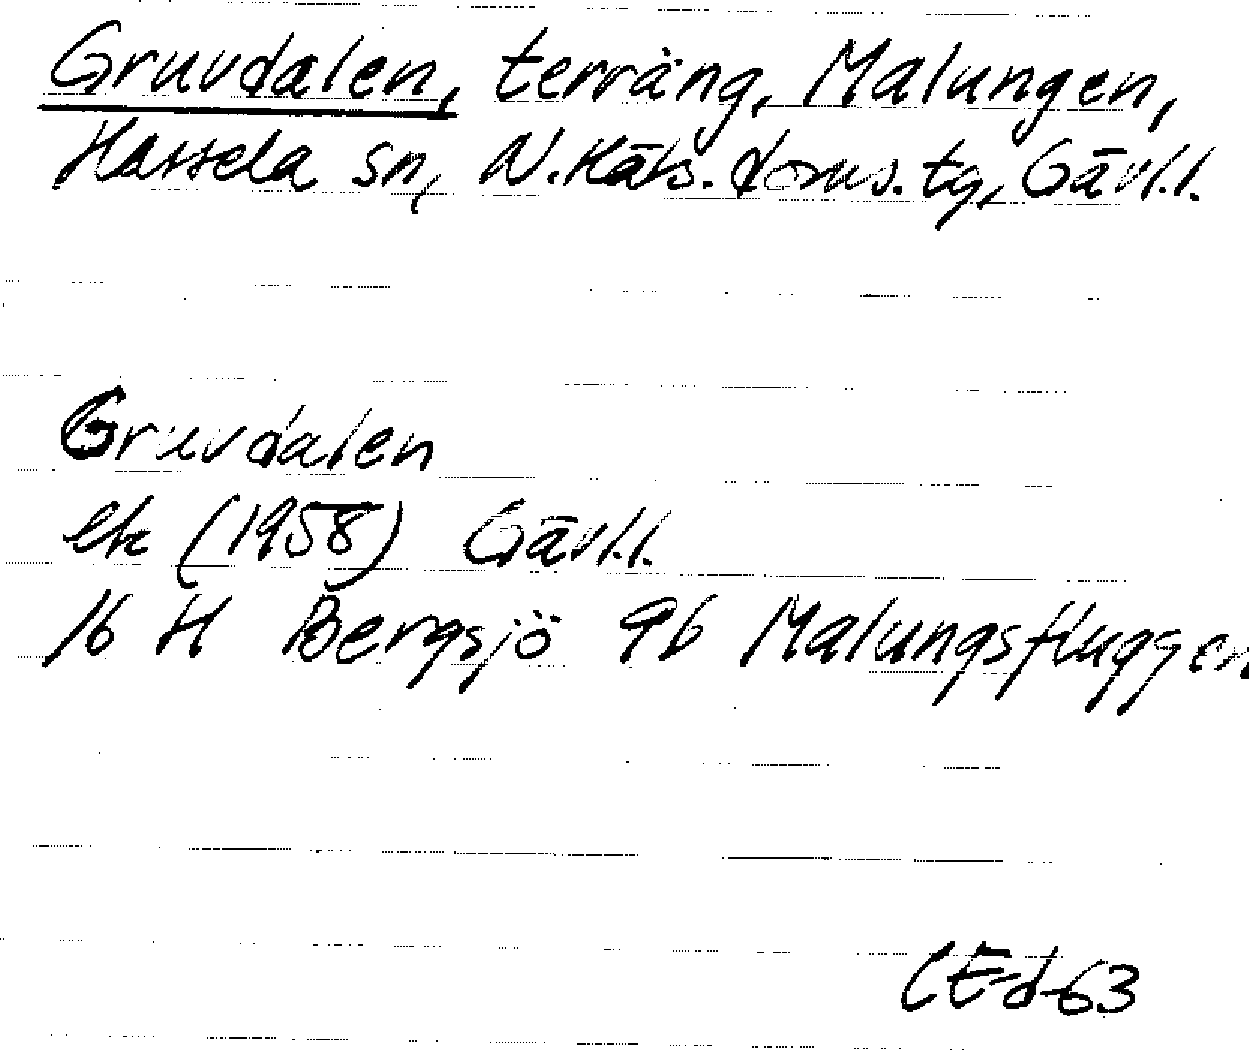 Gruvdalen, terräng, Malungen,
Hassela sn, N. Häls. doms. tg, Gävl.l.
Gruvdalen
ek (1958) Gävl.l.
16 H Bergsjö 9b Malungsfluggen
CEd-63